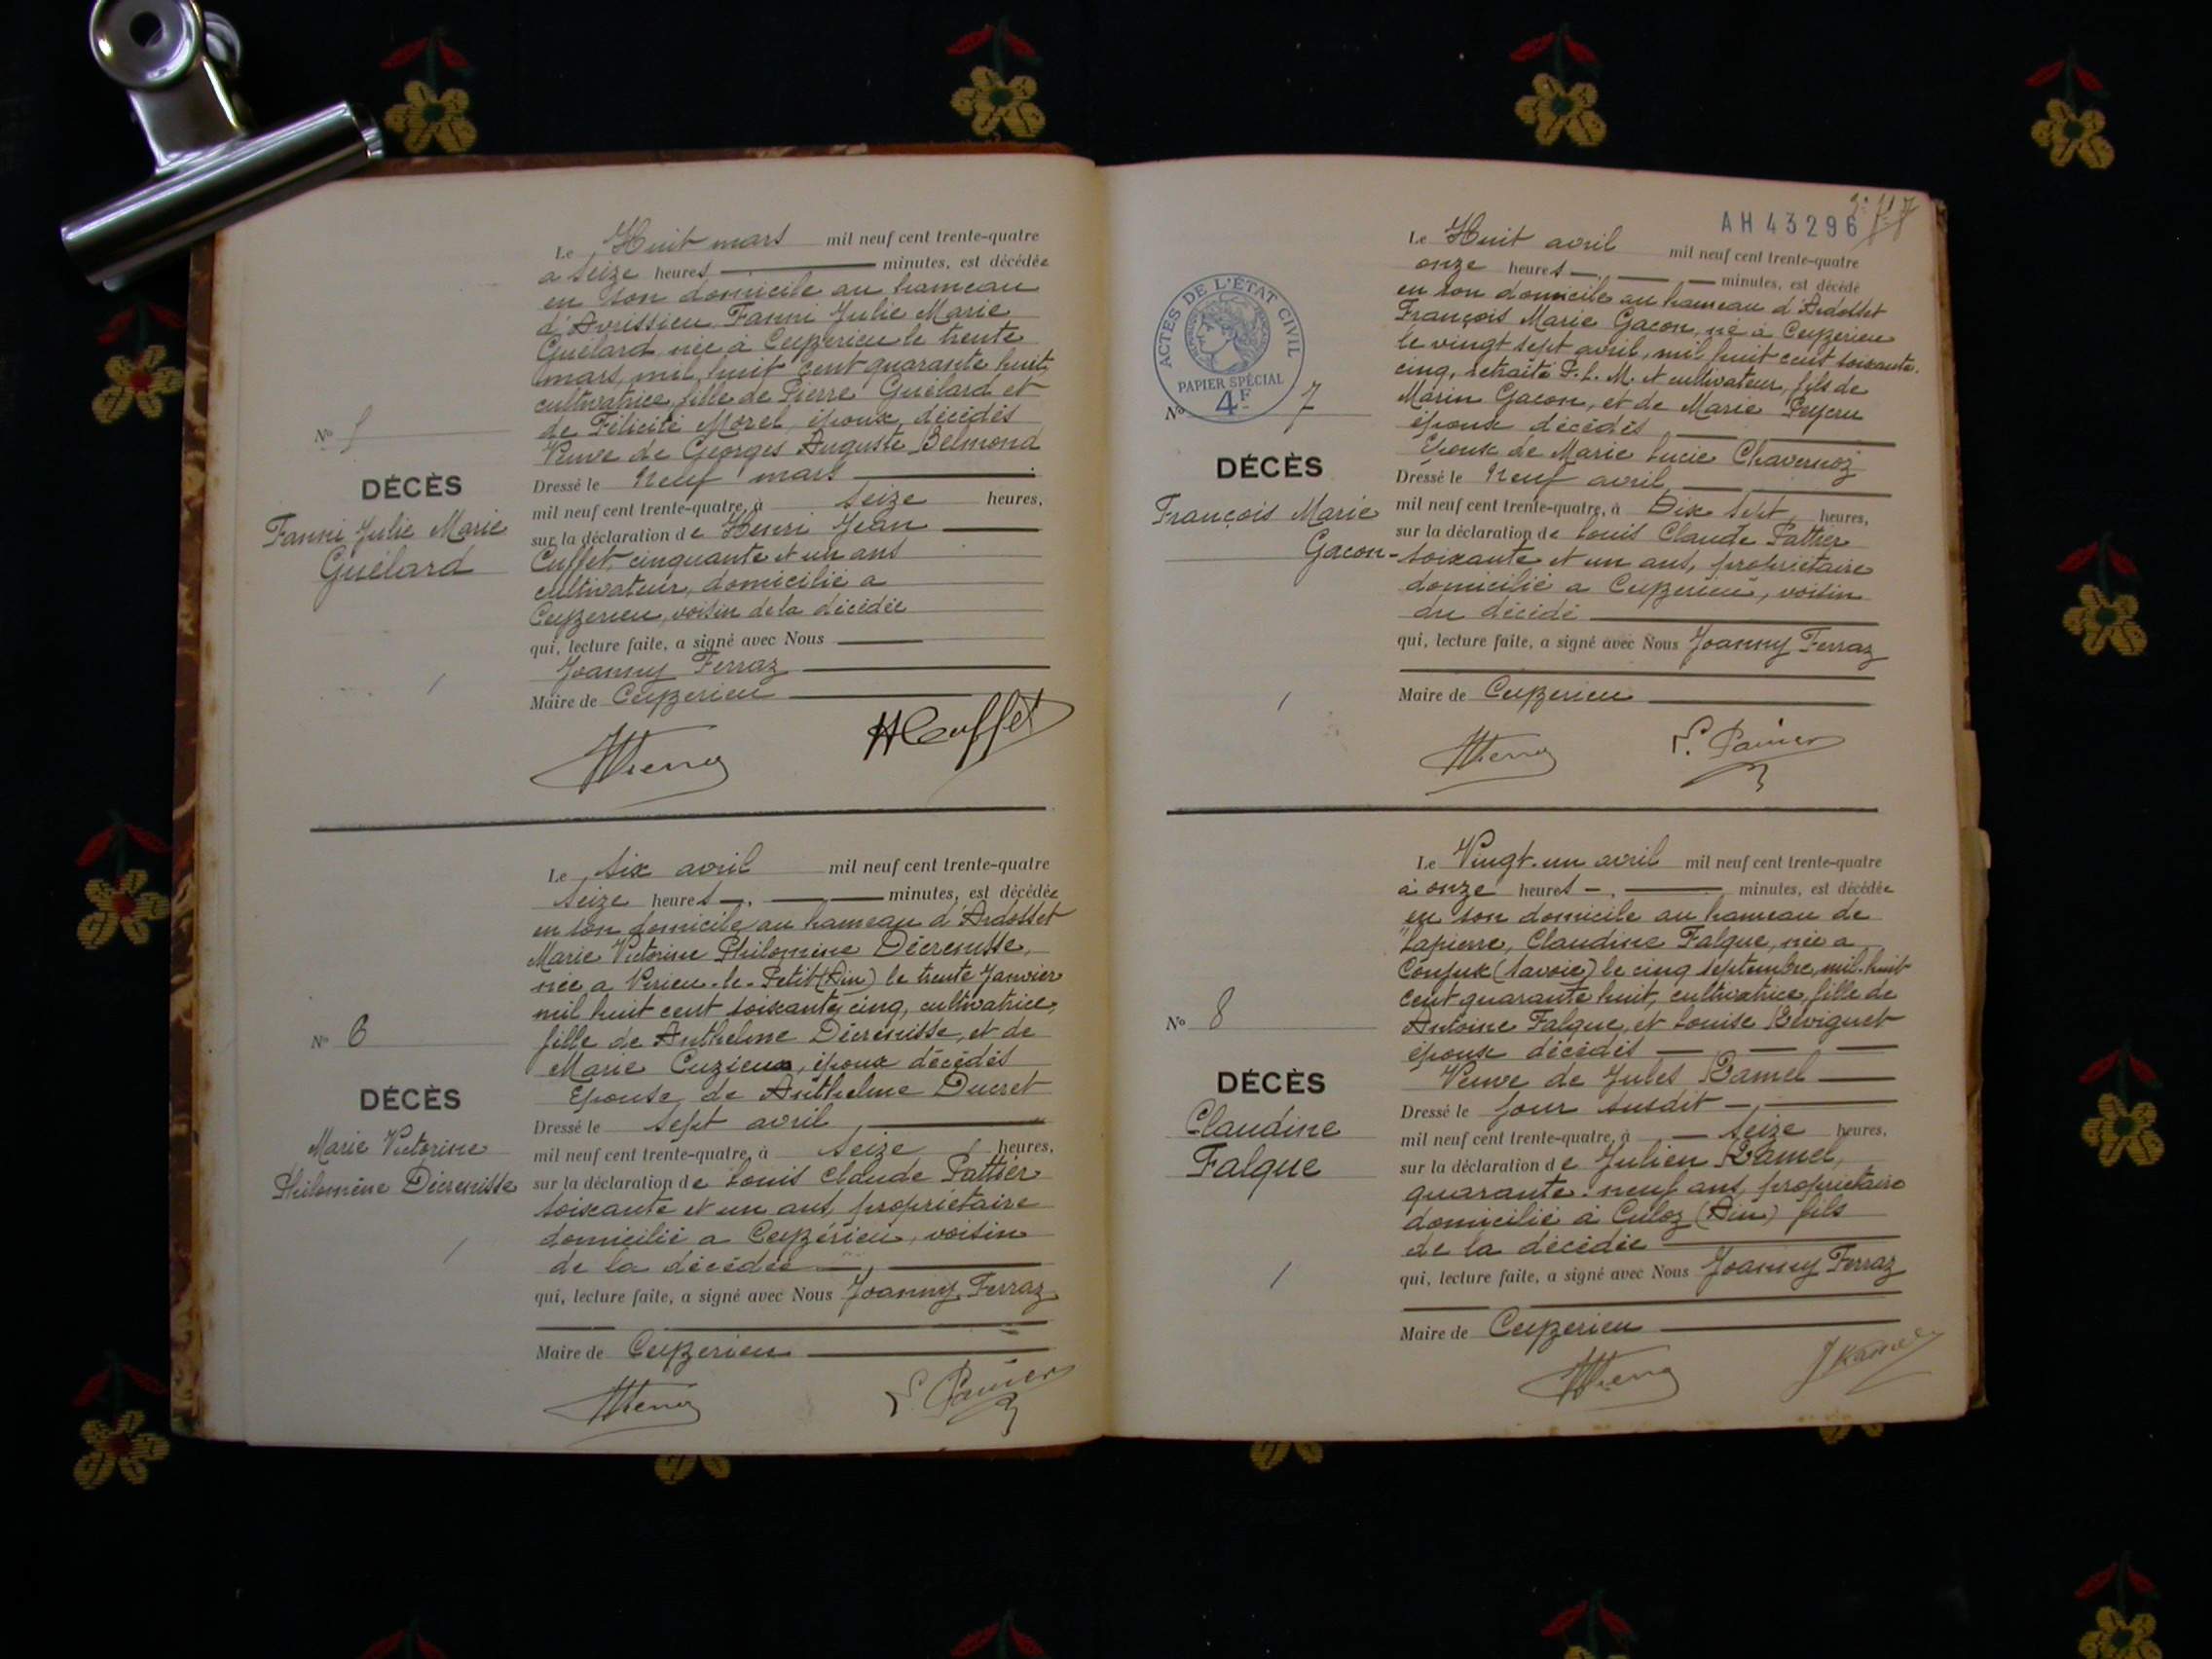 Le Huit mars mil neuf cent trente-quatre
a seize heures minutes, est décédée
en son domicile au hameau
d'Avrissieu Fanni Julie Marie
Guélard née à Ceyzerieu le trente
mars, mil huit cent quarante huit,
cultivatrice, fille de Pierre Guélard et
de Félicité Morel, époux décédés
Veuve de Georges Auguste Belmond
Dressé le Neuf mars
mil neuf cent trente-quatre, à seize heures,
sur la déclaration de Henri Jean
Cuffet, cinquante et un ans
cultivateur, domicilié a
Ceyzerieu, voisin de la décédée
qui, lecture faite, a signé avec Nous
Joanny Ferraz
Maire de Ceyzerieu
HCuffet
N° 5
DÉCÈS
Fanni Julie Marie
Guélard
Le six avril mil neuf cent trente-quatre
seize heures minutes, est décédée
en son domicile au hameau d'Ardosset
Marie Victorine Philomine Décrenisse,
née a Virieu-le-Petit (Ain) le trente Janvier
mil huit cent soixante cinq, cultivatrice,
fille de Anthelme Décrenisse, et de
Marie Cuzieux, époux décédés
Epouse de Anthelme Ducret
Dressé le sept avril
mil neuf cent trente-quatre, à seize heures,
sur la déclaration de Louis Claude Pattier
soixante et un ans, propriétaire
domicilié a Ceyzérieu, voisin
de la décédée
qui, lecture faite, a signé avec Nous Joanny Ferraz
Maire de Ceyzerieu
N° 6
DÉCÈS
Marie Victorine
Philomène Décrenisse
AH 43296
Le Huit avril mil neuf cent trente-quatre
onze heures minutes, est décédé
en son domicile au hameau d'Ardosset
François Marie Gacon, né à Ceyzerieu
le vingt sept avril, mil huit cent soixante
cinq, retraité P. L. M. et cultivateur, fils de
Marin Gacon, et de Marie Peycru
époux décédés
Epoux de Marie Lucie Chavernoz
Dressé le Neuf avril
mil neuf cent trente-quatre, à Dix sept heures,
sur la déclaration de Louis Claude Pattier
soixante et un ans, propriétaire
domicilié a Ceyzerieu, voisin
du décédé
qui, lecture faite, a signé avec Nous Joanny Ferraz
Maire de Ceyzerieu
ACTES DE L'ÉTAT CIVIL
PAPIER SPÉCIAL
4F
N° 7
DÉCÈS
François Marie
Gacon
Le Vingt-un avril mil neuf cent trente-quatre
à onze heures minutes, est décédée
en son domicile au hameau de
Lapierre, Claudine Falque, née a
Conjux (Savoie) le cinq septembre, mil-huit
cent quarante huit, cultivatrice, fille de
Antoine Falque, et LouiseRéviguet
époux décédés
Veuve de Jules Ramel
Dressé le jour susdit
mil neuf cent trente-quatre, à seize heures,
sur la déclaration de Julien Ramel,
quarante-neuf ans, propriétaire
domicilié à Culoz (Ain) fils
de la décédée
qui, lecture faite, a signé avec Nous Joanny Ferraz
Maire de Ceyzerieu
N° 8
DÉCÈS
Claudine
Falque